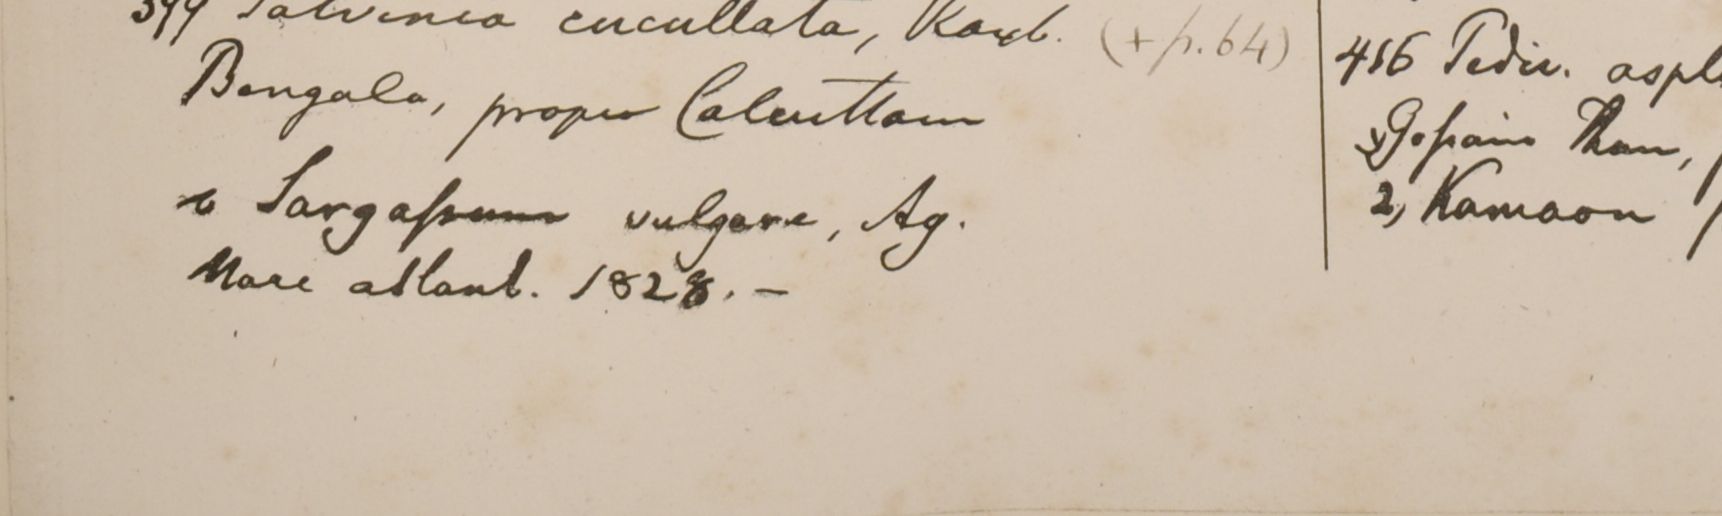 399 Salvinia cucullata, Roxb. (+ p. 64)
Bengala, prope Calcuttam
Sargassum vulgare, Ag.
Mare atlant. 1828. –
416 Pedic. aspl
Gossain Than,
2, Kamaon